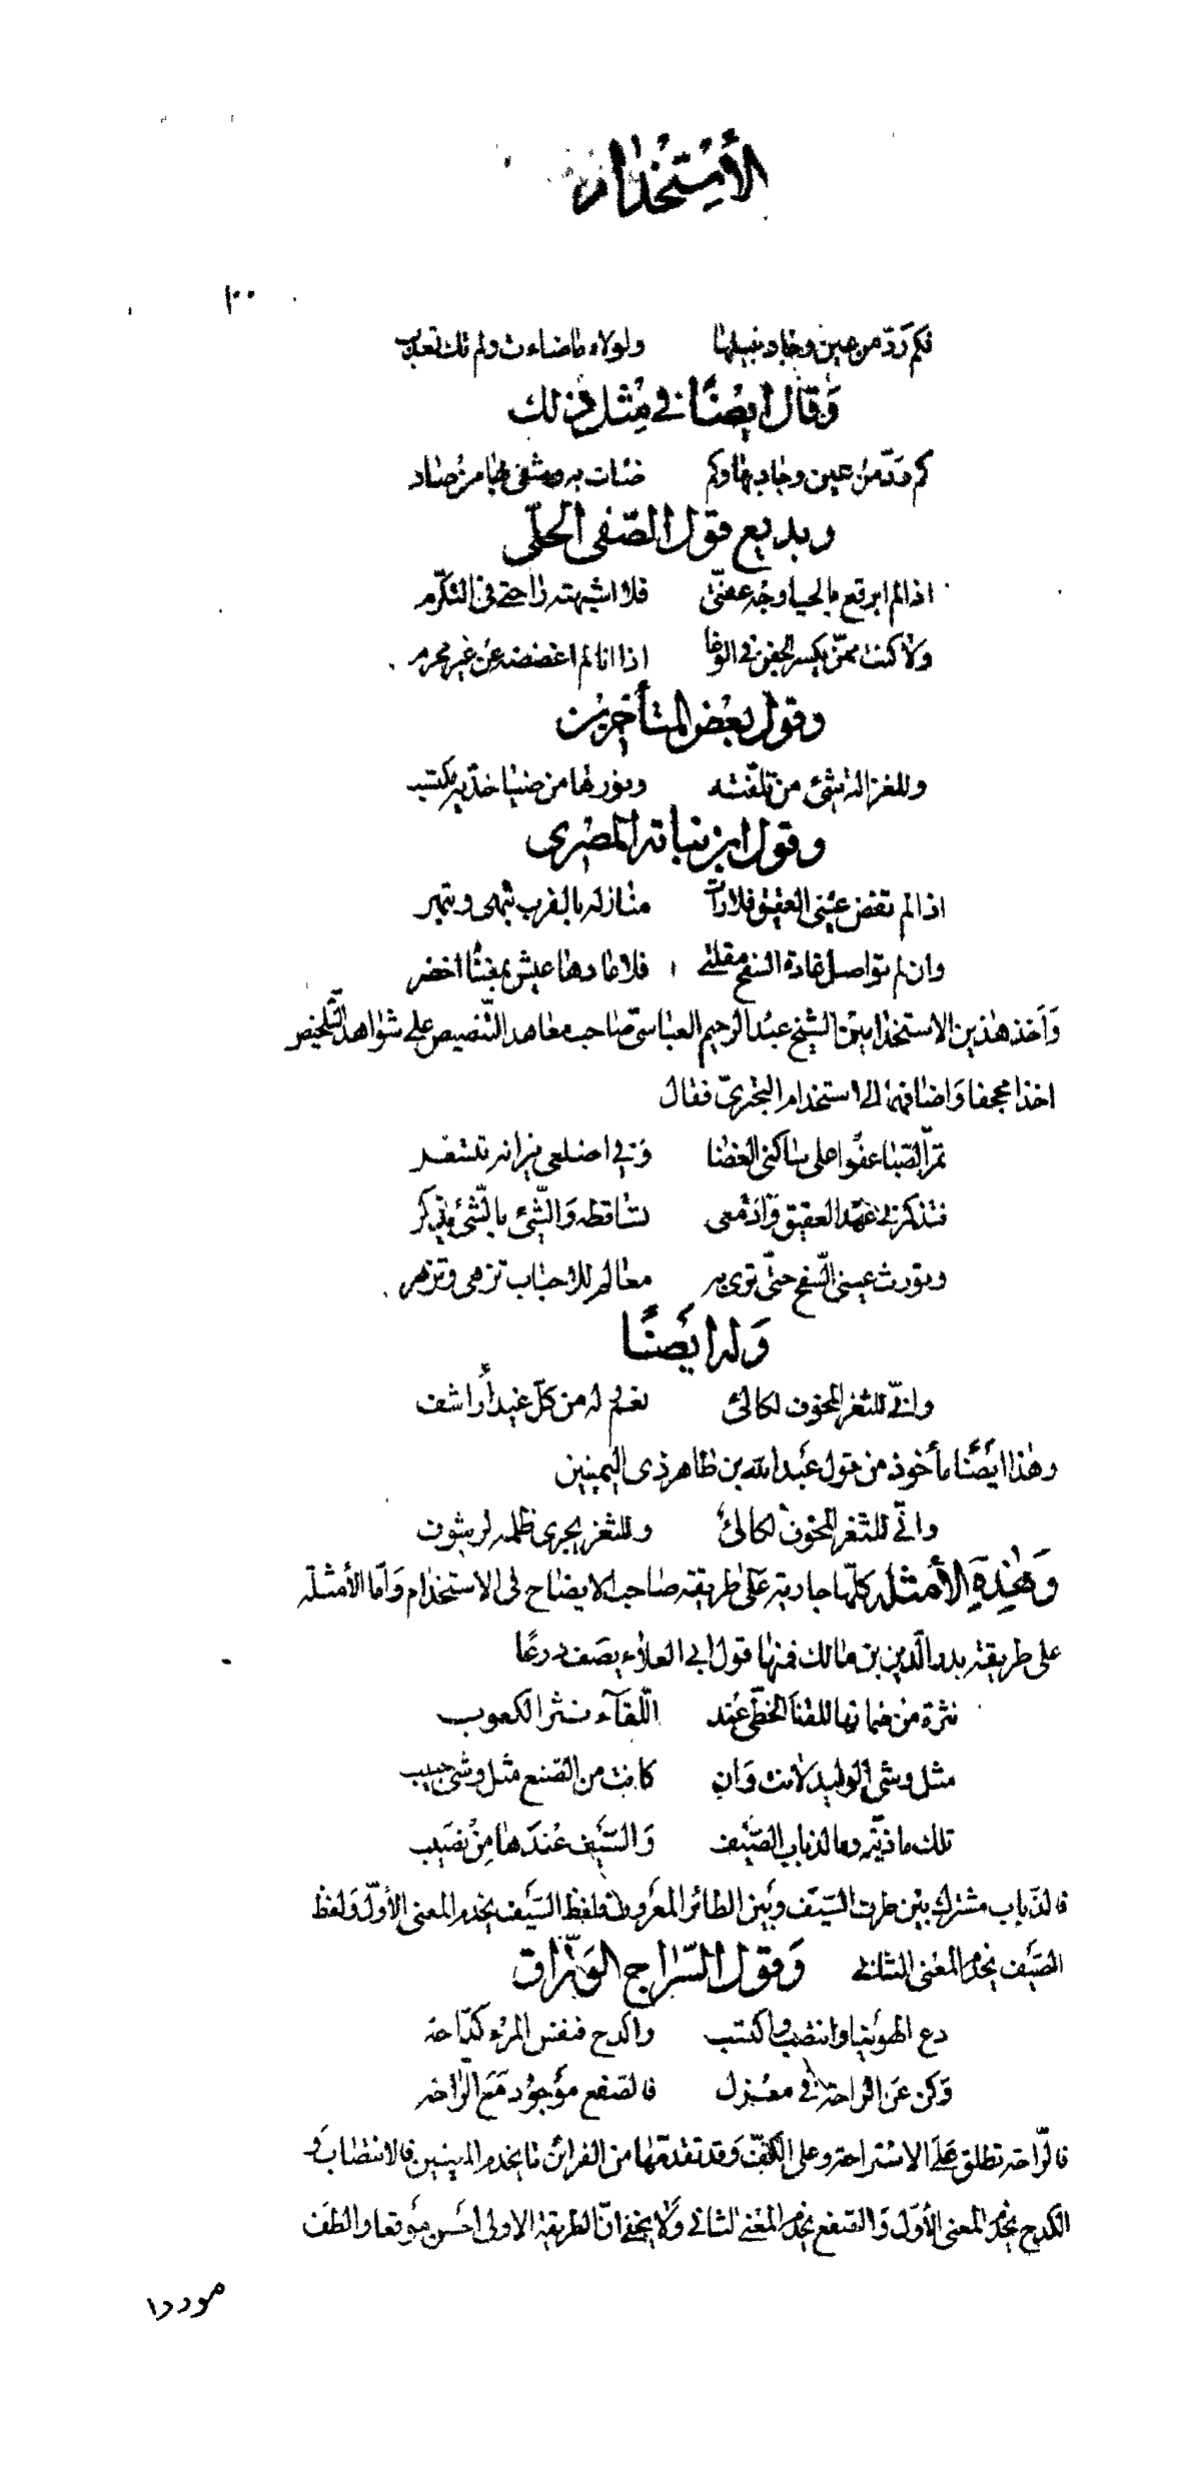 الأستخدام
١٠٠
فكم رد من عين وجاد بمثلها ولولاه ما ضاءت ولم تك تعذب
وقال ايضًا في مثل ذلك
كم رد من عين وجاد بها وكم ضائت به وسقى بها من صاد
وبديع قول الصّفى الحلّى
اذا لم ابرقع بالحيا وجه عفتى فلا اشبهته راحتى فى التكرّم
ولا كنت ممّن يكسر الجفن فى الوغا اذا انا لم اغضضه عن غير محرم
وقول بعض المتأخرين
وللغزالة شئ من تلفّته ونورها من ضيا خدّيه يكتسب
وقول ابن نباته المصرى
اذا لم تفض عينى العقيق فلا رأت منازله بالقرب تبهى وتبهر
وان لم تواصل غادة السفح مقلتى فلا عادها عيش بمغناه اخضر
وَاَخذ هٰذين الاستخدامين الشيخ عبد الرحيم العباسىّ صاحب معاهد التّنصيص على شواهد التّلخيص
اخذا مجحفا وَاضافهما الى استخدام البحترىّ فقال
تمرّ الصّبا عفوا على ساكنى الغضا وفى اضلعى نيرانه تتسعر
فتذكرنى عهد العقيق وَادمعى تساقطه وَالشّئ بالشّئ يذكر
وتورث عينى السّفح حتّى ترى به معالم للاحباب تزهى وتزهر
وَله ايضًا
وانّى للثغر المخوف لكالئ نعم له من كلّ غيد أراشف
وهٰذا ايضًا مأخوذ من قول عَبد الله بن طاهر ذى اليمينين
وانّى للثغر المخوف لكالئ وللثغر يجرى ظلمه لرشوف
وَهٰذِهِ الأمثله كلّها جارية عَلىٰ طريقة صاحب الايضاح فى الاستخدام وَامّا الأمثلة
على طريقة بدر الدّين بن مالك فمنها قول ابى العلاء يصَف درعًا
نثرة من ضمانها للقنا الخطّى عند اللّقآء نثر الكعوب
مثل وشى الوليد لانت وَان كانت من الصّنع مثل وشى حبيب
تلك ماذيّة وما لذباب الصّيف وَالسّيف عندَها مِنْ نصَيب
فالذّباب مشترك بين طرف السّيف وبَين الطائر المعروف فلفظ السّيَف يخدم المعنى الأوّل وَلفظ
الصّيَف يخدم المعْنى الثانى وَقول السّراج الوَرّاق
دع الهوينا وانتصب واكتسب واكدح فنفس المرء كدّاحة
وَكن عَن الراحة فى معْزل فالصّفع موَجوُد مَع الرّاحة
فالرّاحة تطلق عَلَى الاسْتراحة وعلى الكفّ وَقد تقدّمها من القرائن ما يخدم المعنيين فالانتصاب وَ
الكدح يخدم المعنى الأوّل وَالصّفع يخدم المعْنى الثانى وَلا يخفى انّ الطريقة الاولى أحَسن موَقعا والطف
موردا